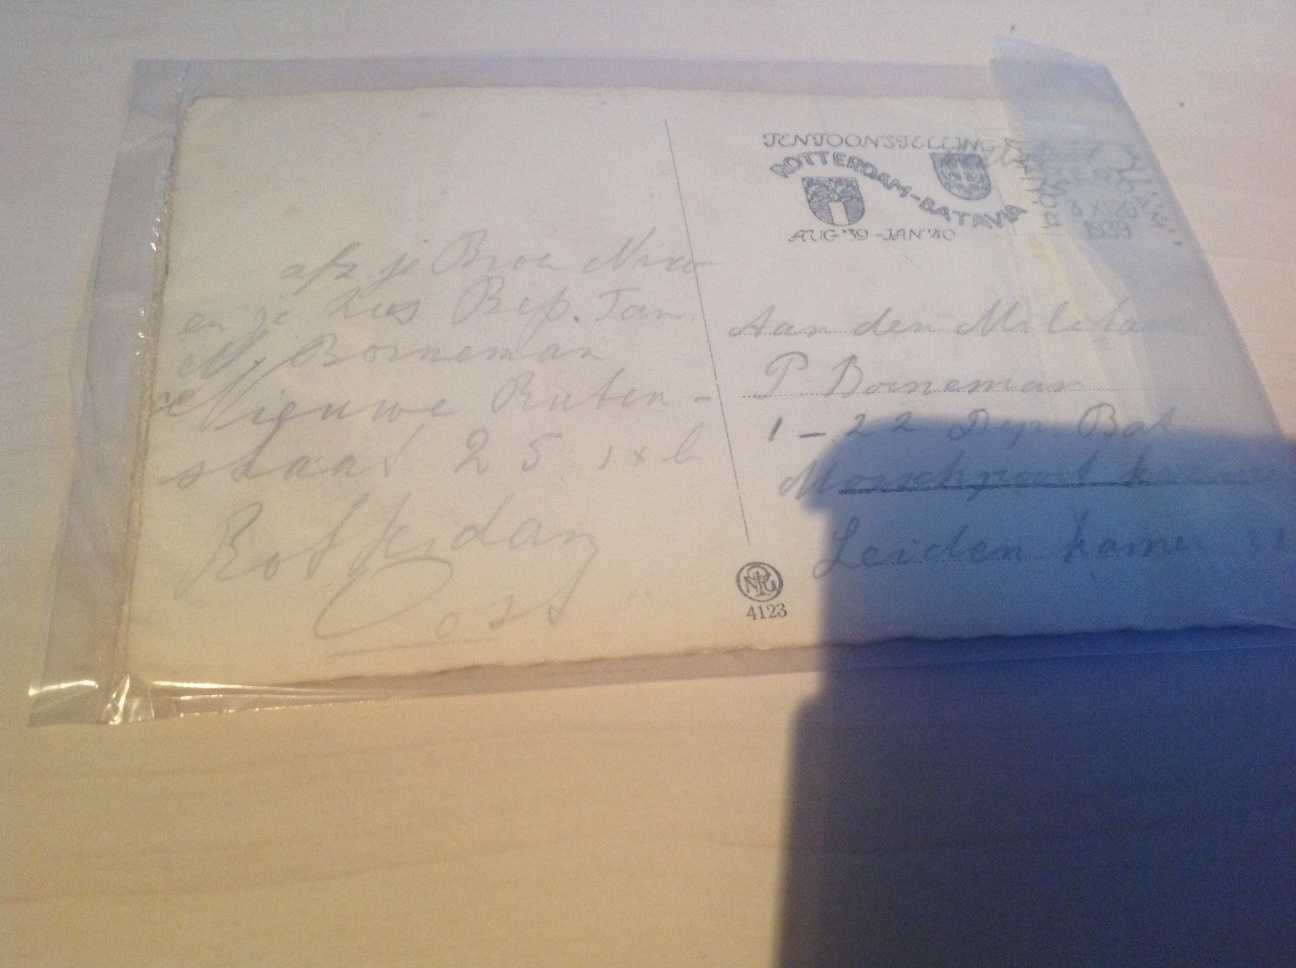 afz je Broer Nico
en je zus Bep. Jan
M. Borneman
Nieuwe Ruben-
straat 25 b
Rotterdam
Oost
TENTOONSTELLING
ROTTERDAM-BATAVIA
AUG '39-JAN '40
XI 20
1939
Aan den Militair
P Borneman
1-22 Dep Bat
Morschpoort
Leiden kamer
4123